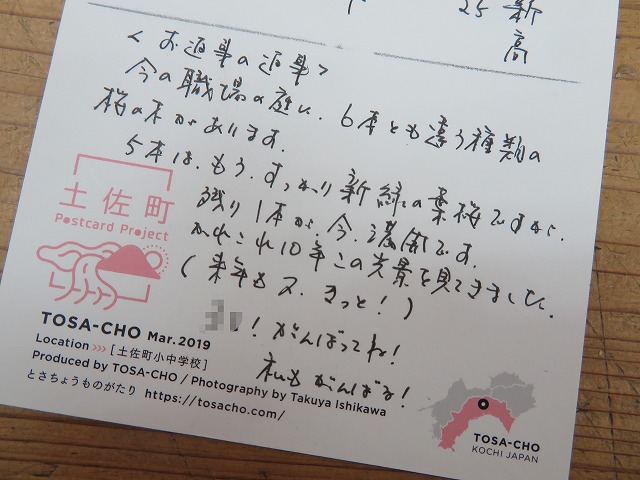 25 新
高
<お返事の返事>
今の職場の庭に、6本とも違う種類の
桜の木があります。
5本は、もう、すっかり新緑の葉桜ですが、
残り1本が、今、満開です。
かれこれ10年この光景を見てきました。
(来年も又、きっと!)
! がんばってね!
私もがんばる!
土佐町
Postcard Project
TOSA-CHO Mar.2019
Location >>> [土佐町小中学校]
Produced by TOSA-CHO / Photography by Takuya Ishikawa
とさちょうものがたり https://tosacho.com/
TOSA-CHO
KOCHI JAPAN